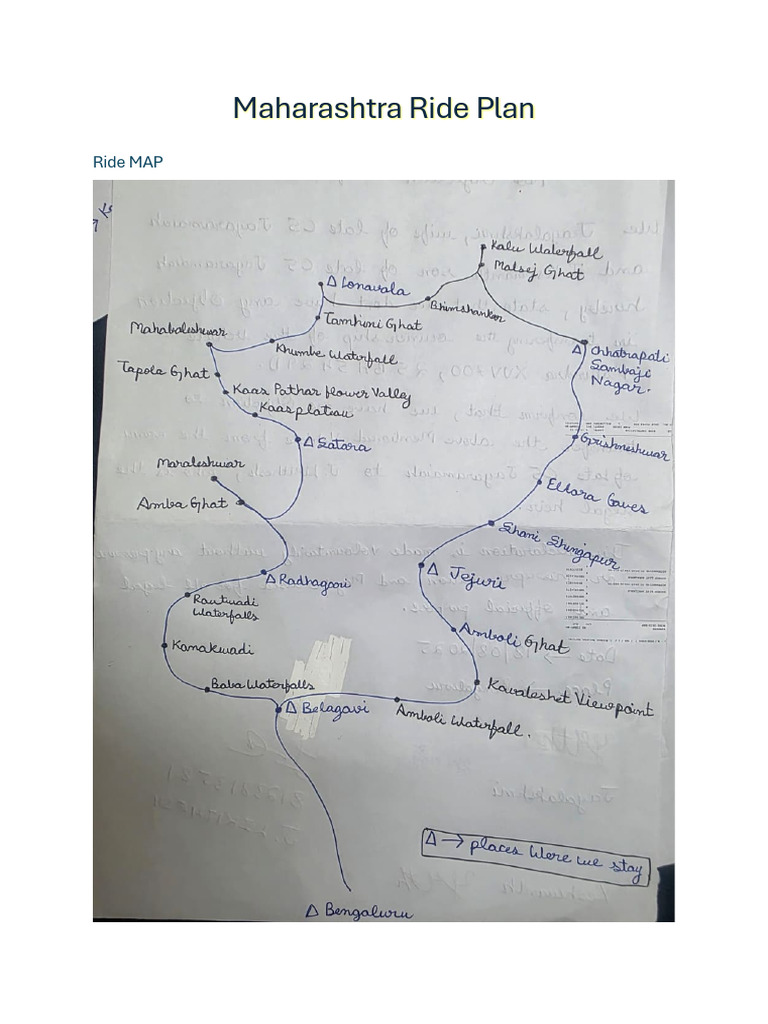 Maharashtra Ride Plan
Ride MAP
Kalu Waterfall
Malsej Ghat
Δ Lonavala
Bhimshankar
Tamhini Ghat
Mahabaleshwar
Khumbe Waterfall
Δ Chhatrapati
Sambaji
Nagar.
Tapola Ghat
Kaas Pathar flower Valley
Kaas platiau
Δ Satara
Grishneshwar
Maraleshwar
Ellora Caves
Amba Ghat
Shani Shingapur
Δ Radhagori
Δ Jejuri
Rautwadi
Waterfalls
Amboli Ghat
Kamakwadi
Baba Waterfalls
Kavaleshet Viewpoint
Δ Belagavi
Amboli Waterfall.
Δ → places were we stay
Δ Bengaluru